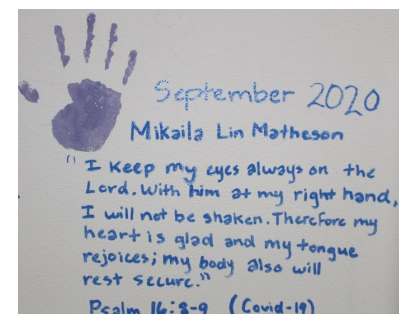 September 2020
Mikaila Lin Matheson
"I keep my eyes always on the
Lord. With him at my right hand,
I will not be shaken. Therefore my
heart is glad and my tongue
rejoices; my body also will
rest secure."
Psalm 16:8-9 (Covid-19)